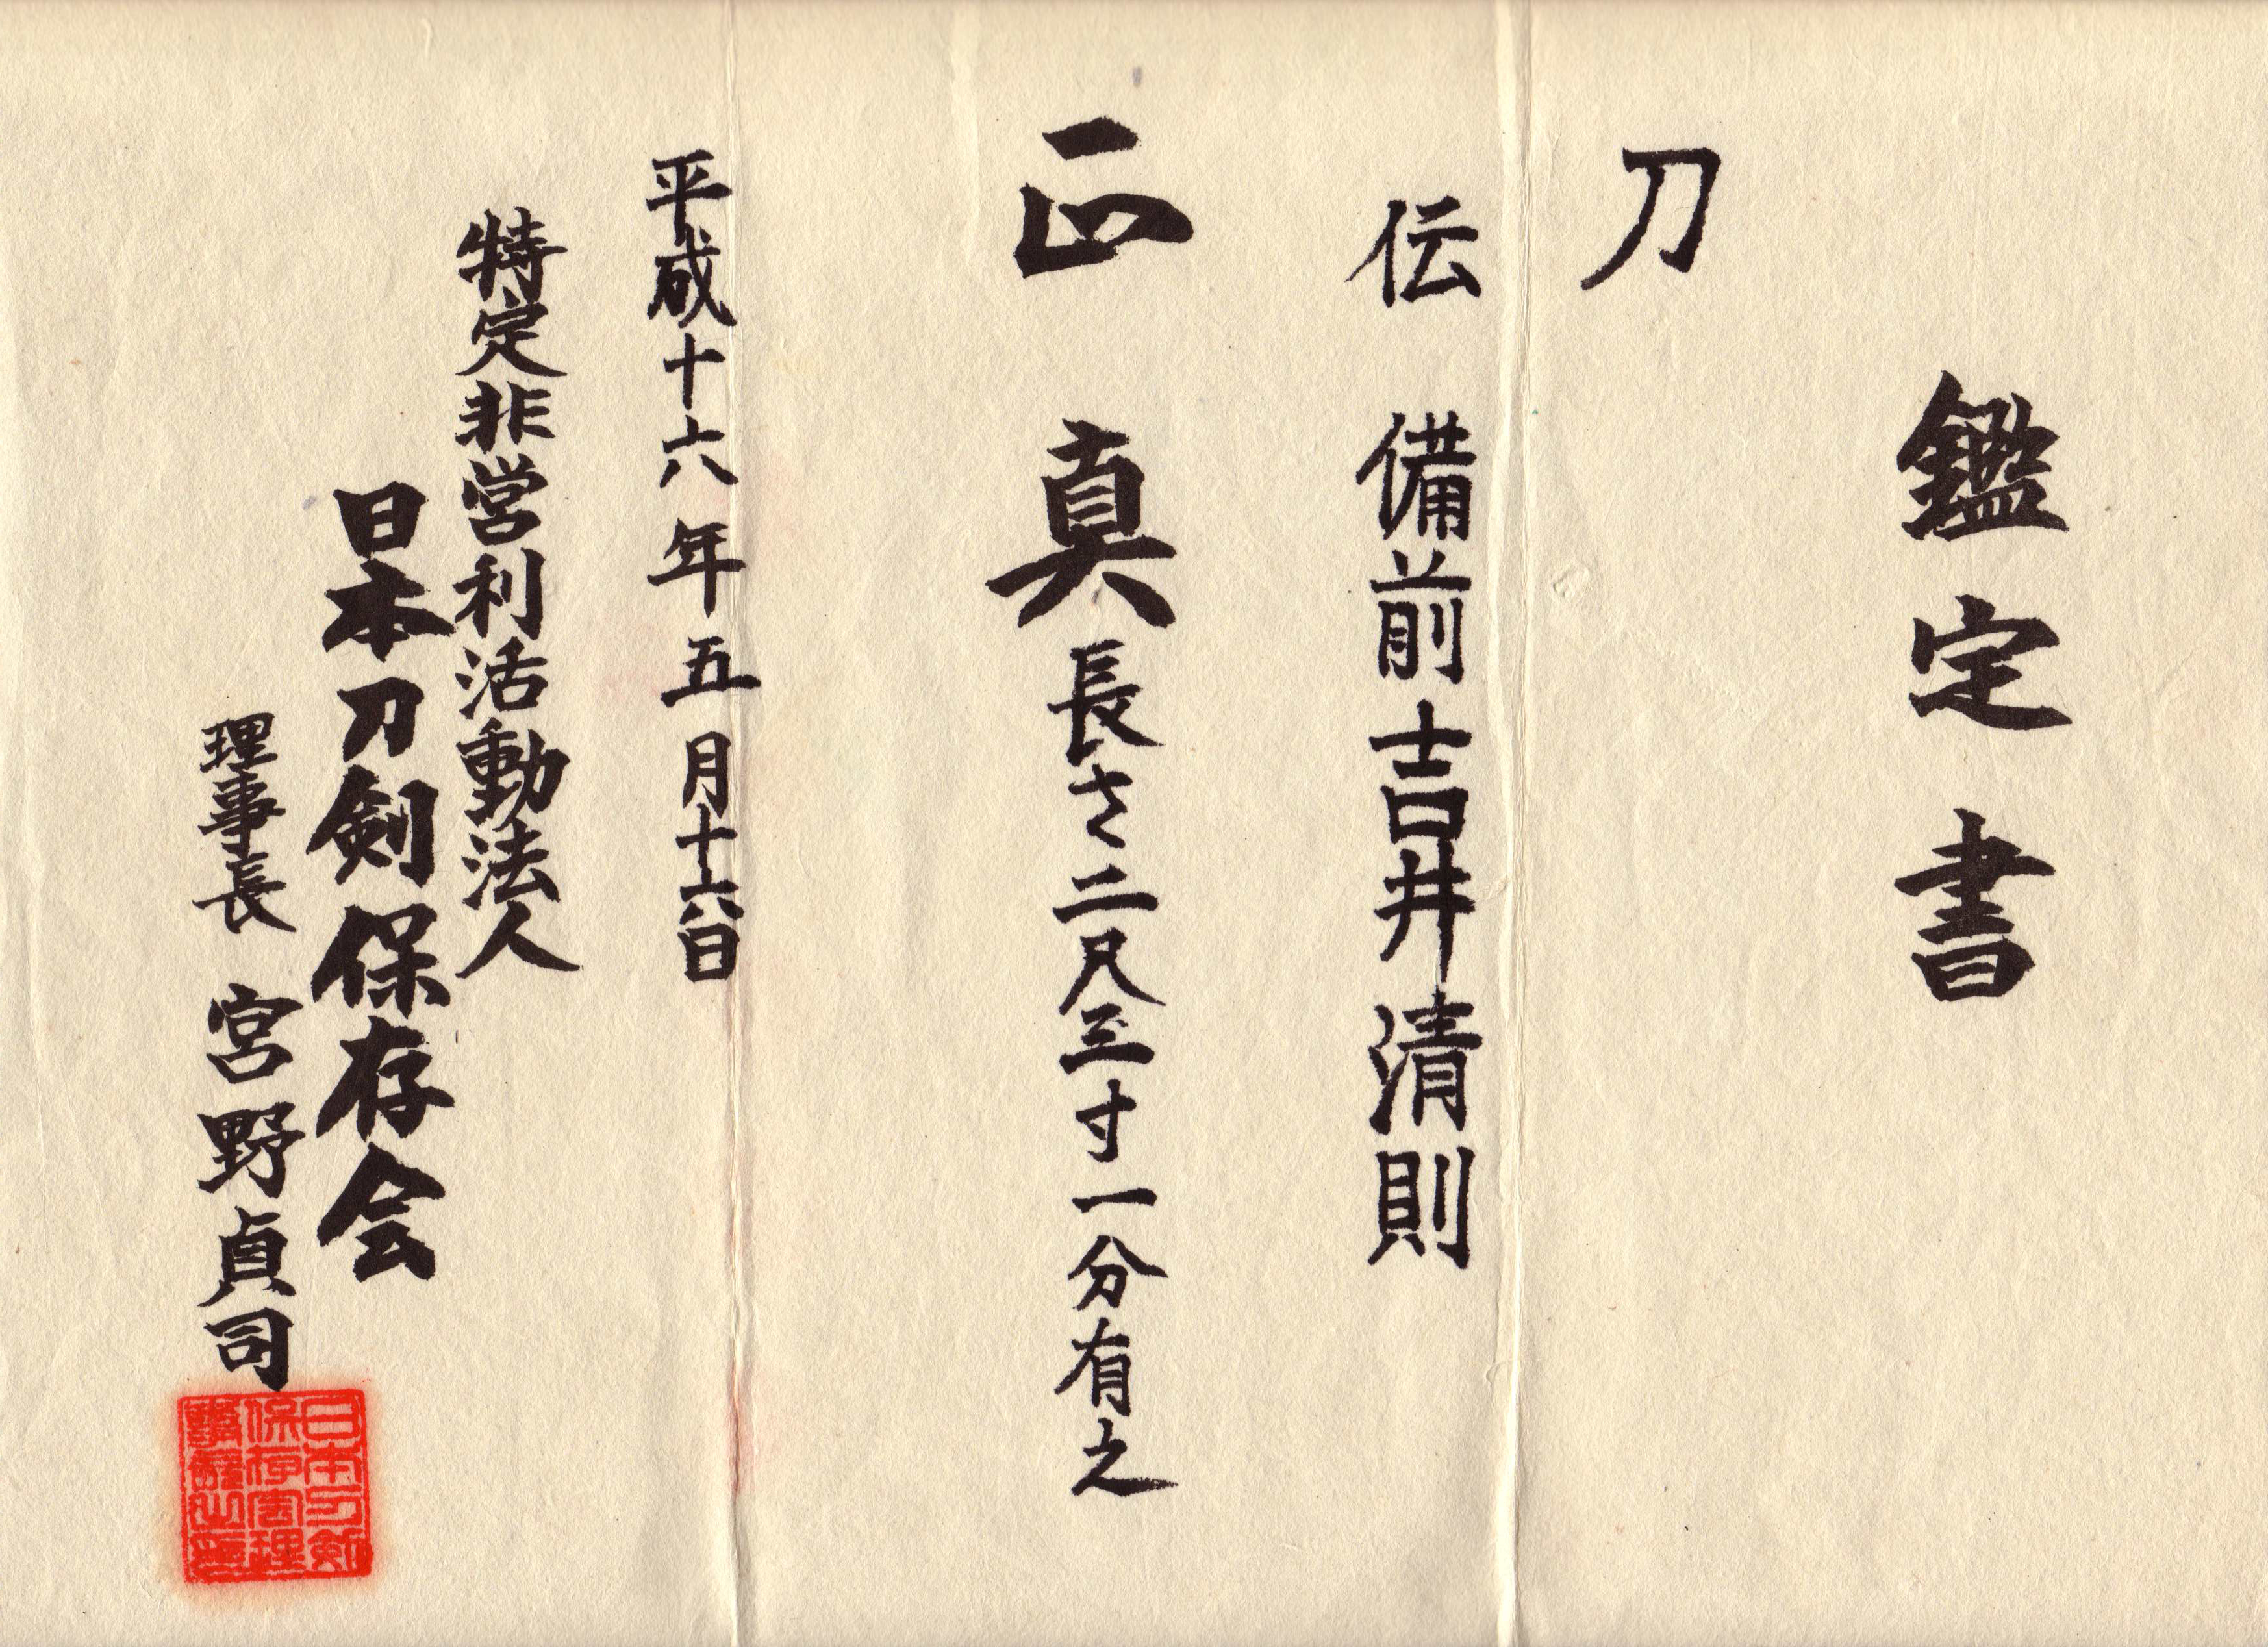 鑑定書
刀
伝 備前吉井清則
正真 長さ二尺三寸一分有之
平成十六年五月十六日
特定非営利活動法人
日本刀剣保存会
理事長 宮野貞司
日本刀剣
保存会理
事長之印